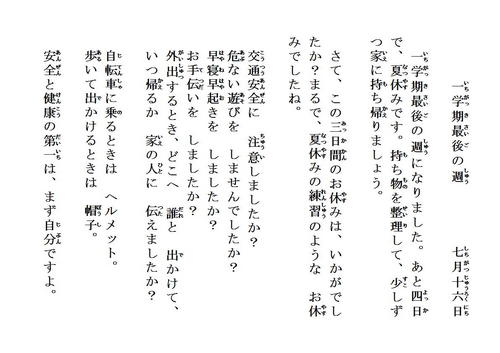 一学期最後の週　　　七月十六日
一学期最後の週になりました。あと四日
で、夏休みです。持ち物を整理して、少しず
つ家に持ち帰りましょう。
さて、この三日間のお休みは、いかがでし
たか？まるで、夏休みの練習のような　お休
みでしたね。
交通安全に　注意しましたか？
危ない遊びを　しませんでしたか？
早寝早起きを　しましたか？
お手伝いを　しましたか？
外出するとき、どこへ　誰と　出かけて、
いつ帰るか　家の人に　伝えましたか？
自転車に乗るときは　ヘルメット。
歩いて出かけるときは　帽子。
安全と健康の第一は、まず自分ですよ。